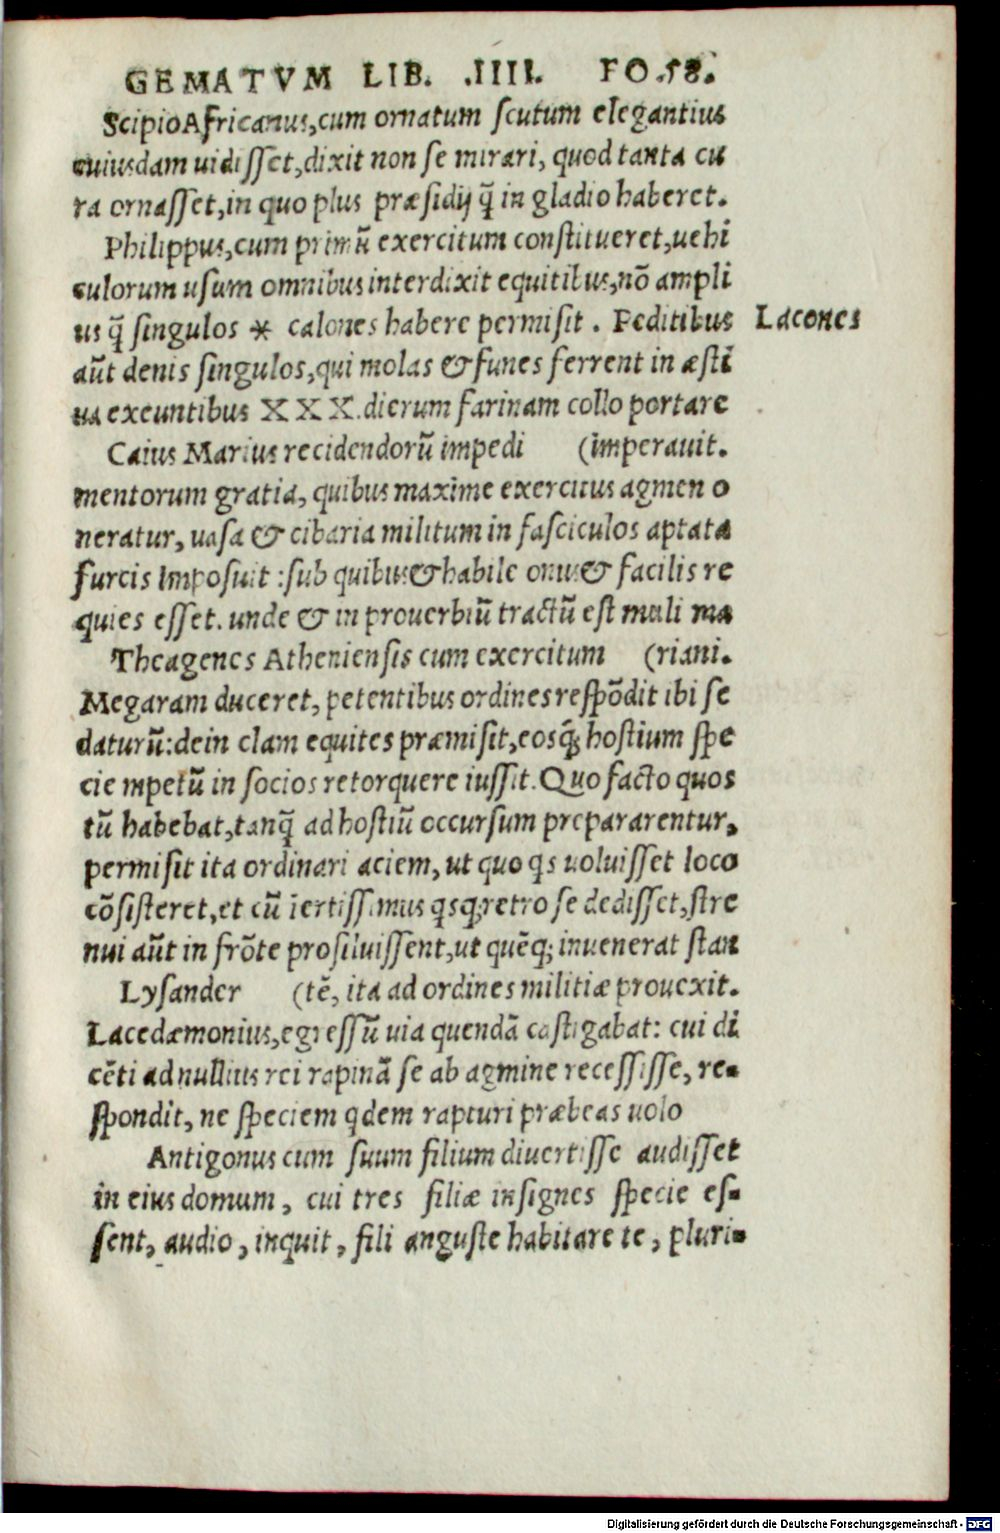 GEMATVM LIB. .IIII. FO.58.
ScipioAfricanus,cum ornatum scutum elegantius
cuiusdam uidisset,dixit non se mirari, quod tanta cu
ra ornasset,in quo plus præsidij q̃ in gladio haberet.
Philippus,cum primũ exercitum constitueret,uehi
culorum usum omnibus interdixit equitibus,nõ ampli
us q̃ singulos * calones habere permisit . Peditibus
Lacones
aũt denis singulos,qui molas & funes ferrent in æsti
ua exeuntibus XXX.dierum farinam collo portare
Caius Marius recidendorũ impedi (imperauit.
mentorum gratia, quibus maxime exercitus agmen o
neratur, uasa & cibaria militum in fasciculos aptata
furcis imposuit :sub quibus&habile onus& facilis re
quies esset. unde & in prouerbiũ tractũ est muli ma
Theagenes Atheniensis cum exercitum (riani.
Megaram duceret, petentibus ordines respõdit ibi se
daturũ:dein clam equites præmisit,eosq; hostium spe
cie mpetũ in socios retorquere iussit. Quo facto quos
tũ habebat,tanq̃ ad hostiũ occursum prepararentur,
permisit ita ordinari aciem, ut quo qs uoluisset loco
cõsisteret,et cũ iertissimus qsq;retro se dedisset,stre
nui aũt in frõte prosiluissent,ut quẽq; inuenerat stan
Lysander (tẽ, ita ad ordines militiæ prouexit.
Lacedæmonius,egressũ uia quendã castigabat: cui di
cẽti ad nullius rei rapinã se ab agmine recessisse, re-
spondit, ne speciem qdem rapturi præbeas uolo
Antigonus cum suum filium diuertisse audisset
in eius domum, cui tres filiæ insignes specie es-
sent, audio, inquit, fili anguste habitare te, pluri-
Digitalisierung gefördert durch die Deutsche Forschungsgemeinschaft - DFG